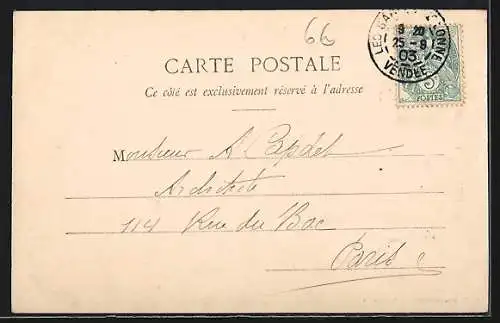 66
CARTE POSTALE
Ce côté est exclusivement réservé à l'adresse
9 20
25 - 9
03
VENDÉE
5
POSTES
Monsieur A.
Architecte
114 Rue du Bac
Paris